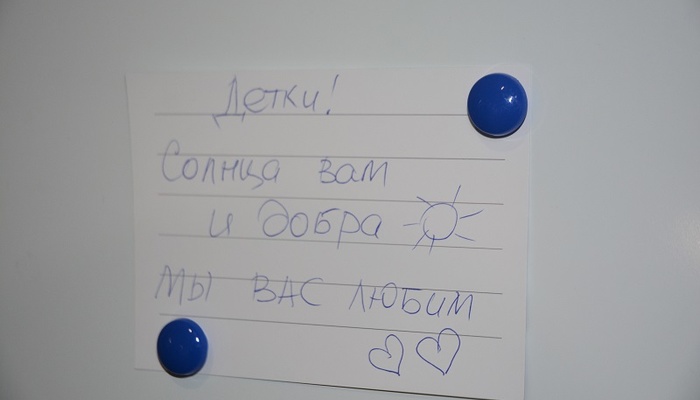 Детки!
Солнца вам
и добра
МЫ ВАС ЛЮБИМ